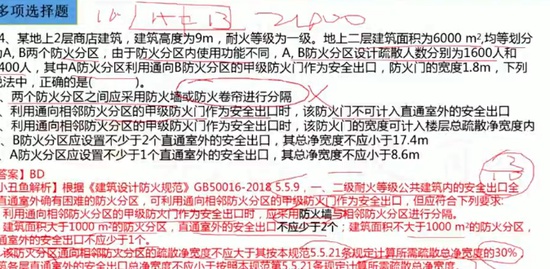 多项选择题
4、某地上2层商店建筑，建筑高度为9m，耐火等级为一级。地上二层建筑面积为6000 m²,均等划分
为A, B两个防火分区，由于防火分区内使用功能不同，A, B防火分区设计疏散人数分别为1600人和
400人，其中A防火分区利用通向B防火分区的甲级防火门作为安全出口，防火门的宽度1.8m，下列
说法中，正确的是( )。
、两个防火分区之间应采用防火墙或防火卷帘进行分隔
、利用通向相邻防火分区的甲级防火门作为安全出口时，该防火门不可计入直通室外的安全出口
、利用通向相邻防火分区的甲级防火门作为安全出口时，该防火门的宽度可计入楼层总疏散净宽度内
、B防火分区应设置不少于2个直通室外的安全出口，其总净宽度不应小于17.4m
、A防火分区应设置不少于1个直通室外的安全出口，其总净宽度不应小于8.6m
答案】BD
小丑鱼解析】根据《建筑设计防火规范》GB50016-2018 5.5.9，一、二级耐火等级公共建筑内的安全出口全
直通室外确有困难的防火分区，可利用通向相邻防火分区的甲级防火门作为安全出口，但应符合下列要求:
利用通向相邻防火分区的甲级防火门作为安全出口时，应采用防火墙与相邻防火分区进行分隔。
建筑面积大于1000 m²的防火分区，直通室外的安全出口不应少于2个；建筑面积不大于1000 m²的防火分区，
通室外的安全出口不应少于1个。
该防火分区通向相邻防火分区的疏散净宽度不应大于其按本规范5.5.21条规定计算所需疏散总净宽度的30%，
筑各层直通室外的安全出口总净宽度不应小于按照本规范第5.5.21条规定计算所需疏散总净宽度。